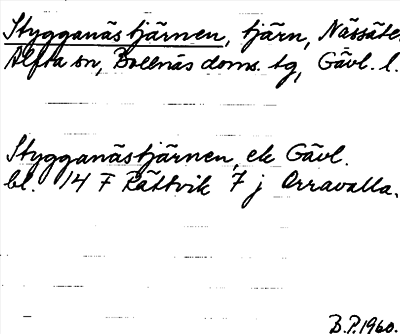 Stygganästjärnen, tjärn, Nässäte
Alfta sn, Bollnäs doms. tg, Gävl. l.
Stygganästjärnen, ek Gävl.
bl. 14 F Rättvik 7 j Orravalla.
B.P. 1960.